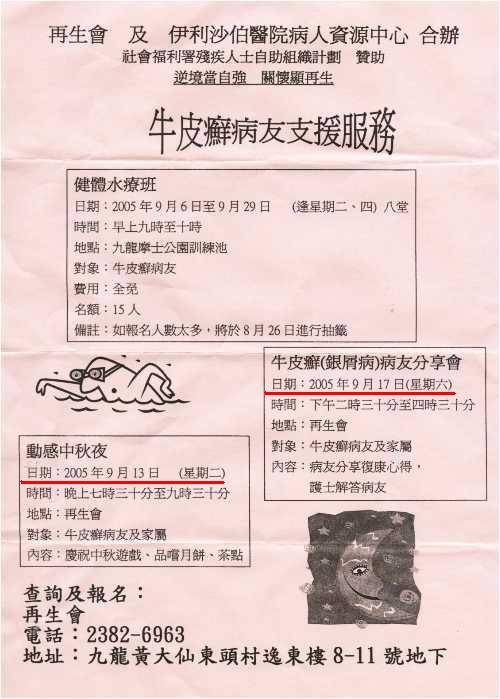 再生會　及　伊利沙伯醫院病人資源中心 合辦
社會福利署殘疾人士自助組織計劃　贊助
逆境當自強　關懷顯再生
牛皮癬病友支援服務
健體水療班
日期：2005 年 9 月 6 日至 9 月 29 日　(逢星期二、四) 八堂
時間：早上九時至十時
地點：九龍摩士公園訓練池
對象：牛皮癬病友
費用：全免
名額：15 人
備註：如報名人數太多，將於 8 月 26 日進行抽籤
牛皮癬(銀屑病)病友分享會
日期：2005 年 9 月 17 日(星期六)
時間：下午二時三十分至四時三十分
地點：再生會
對象：牛皮癬病友及家屬
內容：病友分享復康心得，
護士解答病友
動感中秋夜
日期：2005 年 9 月 13 日　(星期二)
時間：晚上七時三十分至九時三十分
地點：再生會
對象：牛皮癬病友及家屬
內容：慶祝中秋遊戲、品嚐月餅、茶點
查詢及報名：
再生會
電話：2382-6963
地址：九龍黃大仙東頭村逸東樓 8-11 號地下